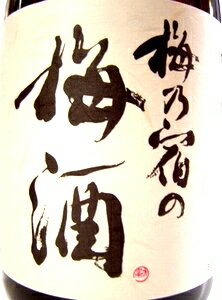 梅乃宿の
梅酒